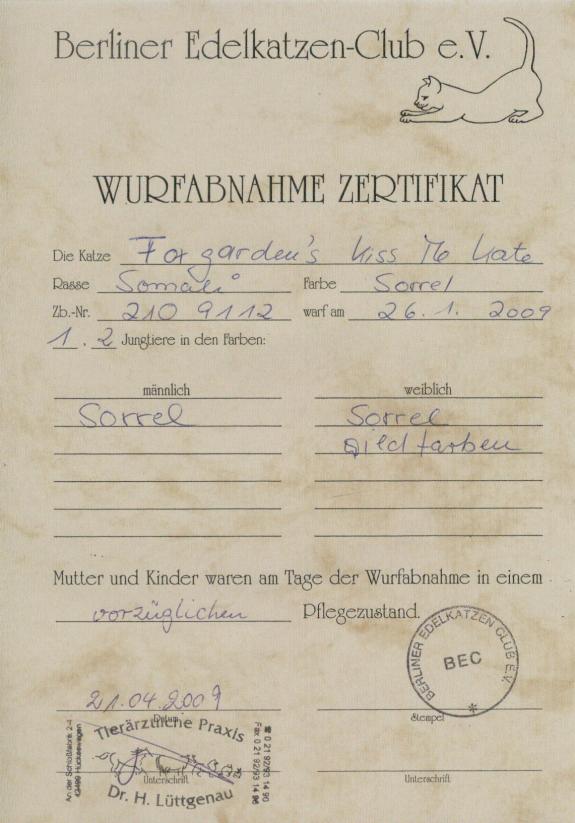 Berliner Edelkatzen-Club e.V.
WURFABNAHME ZERTIFIKAT
Die Katze Foxgarden's Kiss Me Kate
Rasse Somali Farbe Sorrel
Zb.-Nr. 210 9112 warf am 26.1. 2009
1 . 2 Jungtiere in den Farben:
männlich weiblich
Sorrel Sorrel
wildfarben
Mutter und Kinder waren am Tage der Wurfabnahme in einem
vorzüglichen Pflegezustand.
BERLINER EDELKATZEN CLUB E.V.
BEC
*
21.04.2009
Datum Stempel
Tierärztliche Praxis
Dr. H. Lüttgenau
An der Schloßfabrik 2-4
42499 Hückeswagen
☎ 0 21 92/93 14 90
Fax 0 21 92/93 14
Unterschrift Unterschrift